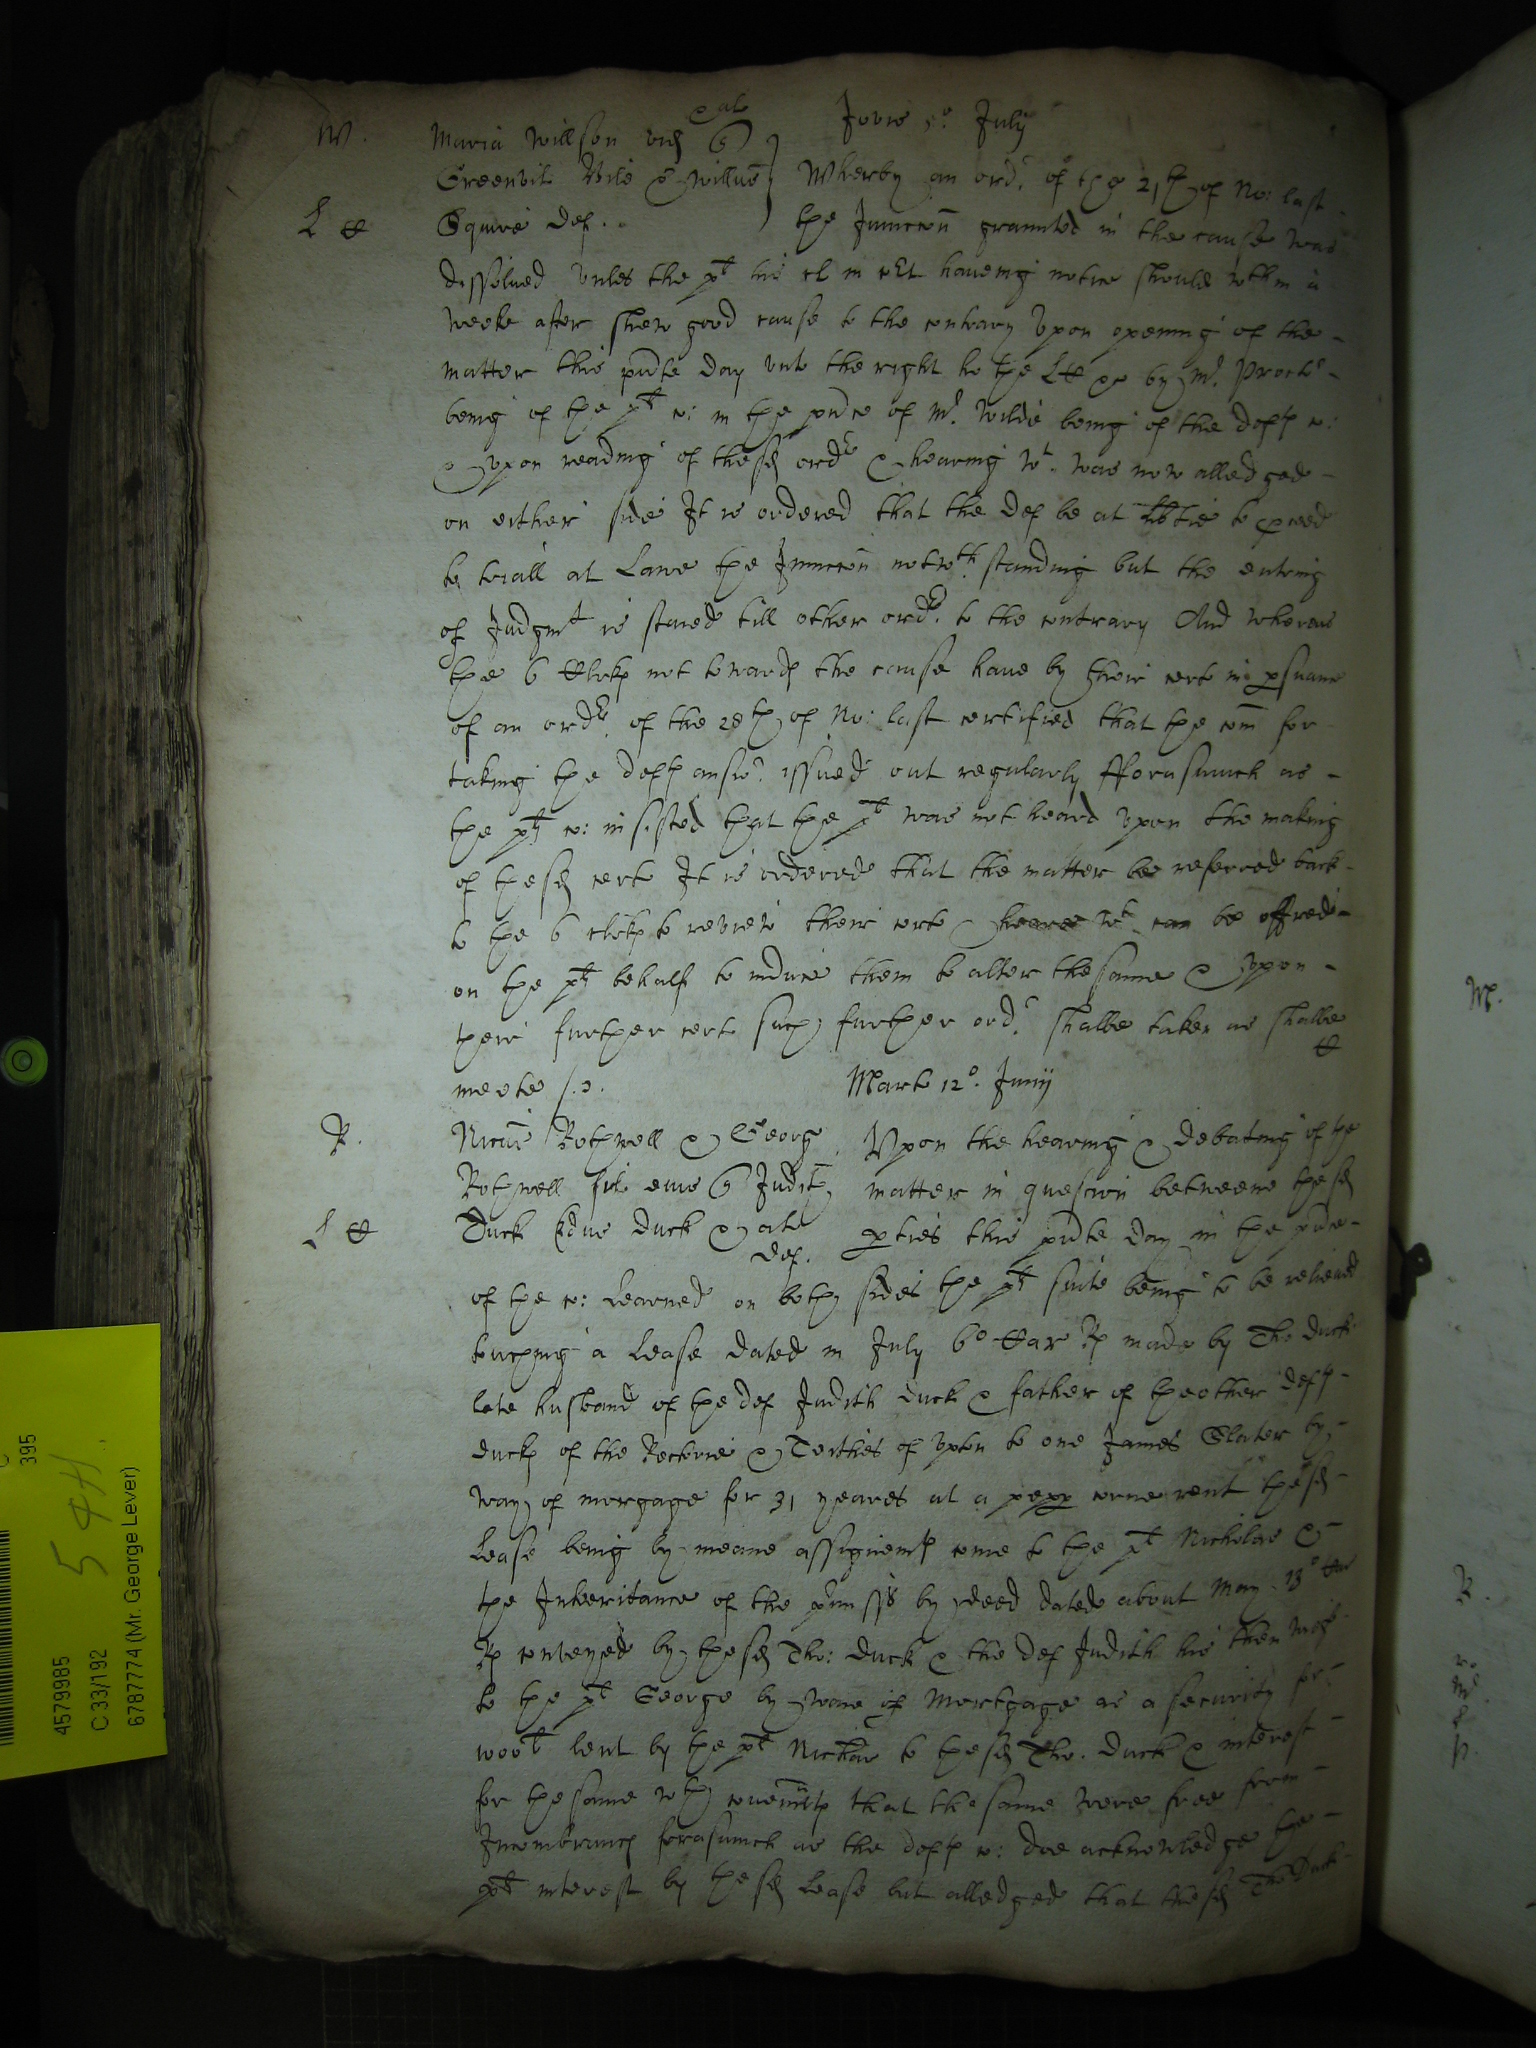 W. Maria Willson vid q & al Jovis 5o July
Greenvil Vile & Willus Wherby an ord. of the 21th of No: last
L Squire def. the Junccon graunted in the cause was
dissolued vnles the plt his cl in Ct haveing notice should wthin a
weeke after shew good cause to the contrary Vpon opening of the
matter this pnte day vnto the right ho the by Mr. Procter
being of the plt co: in the pnce of Mr. Wilde being of the defts co:
& vpon reading of the sd ordr & hearing wt. was now alledged
on either side It is ordered that the def be at libtie to pceed
to triall at Lawe the Junccon notwth. standing but the entring
of Judgmt is staied till other ordr. to the contrary And whereas
the 6 Clrks not towards the cause have by their certe in psuanc
of an ordr. of the 28th of No: last certified that the com for
taking the defts answ. issued out regularly fforasmuch as
the plts co: insisted that the plt was not heard vpon the making
of the sd certe It is ordered that the matter be referred back
to the 6 clrks to review their certe & heare wt can be offred
on the plts behalf to induce them to alter the same & vpon
their further certe such further ord. shalbe taken as shalbe
meete Marte 12o. Junij
R. Nicus Rothwell & Georg Vpon the hearing & debating of the
Rothwell fil eius q Judith matter in question betweene the sd
L Duck vidua Duck & al pties this pnte day in the pnce
def.
of the co: Learned on both sides the plts suite being to be releived
touching a Lease dated in July 6o Car Rs made by Tho Duck
late husband of the def Judith Duck & father of the other defts
Ducks of the Rectorie & Teithes of Vpton to one James Slater by
way of morgage for 31 yeares at a pepp corne rent the sd
Lease being by meane assignemts come to the plt Nicholas &
the Inheritance of the pmisss by deed dated about May 13o Car
Rs conveyed by the sd Tho: Duck & the def Judith his then wife
to the plt George by way of Mortgage as a security for
lent by the plt Nichas to the sd Tho. Duck & interest
for the same wth covennts that the same were free from
Incombrancs forasmuch as the defts co: doe acknowledge the
plts interest by the sd Lease but alledged that the sd Tho Duck
W.
R.
395
5 4H
4579985
C 33/192
6787774 (Mr. George Lever)